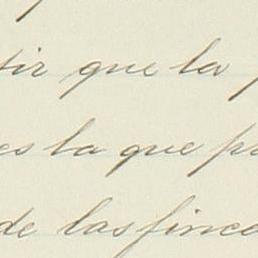 tir que la
es la que pa
de las finca